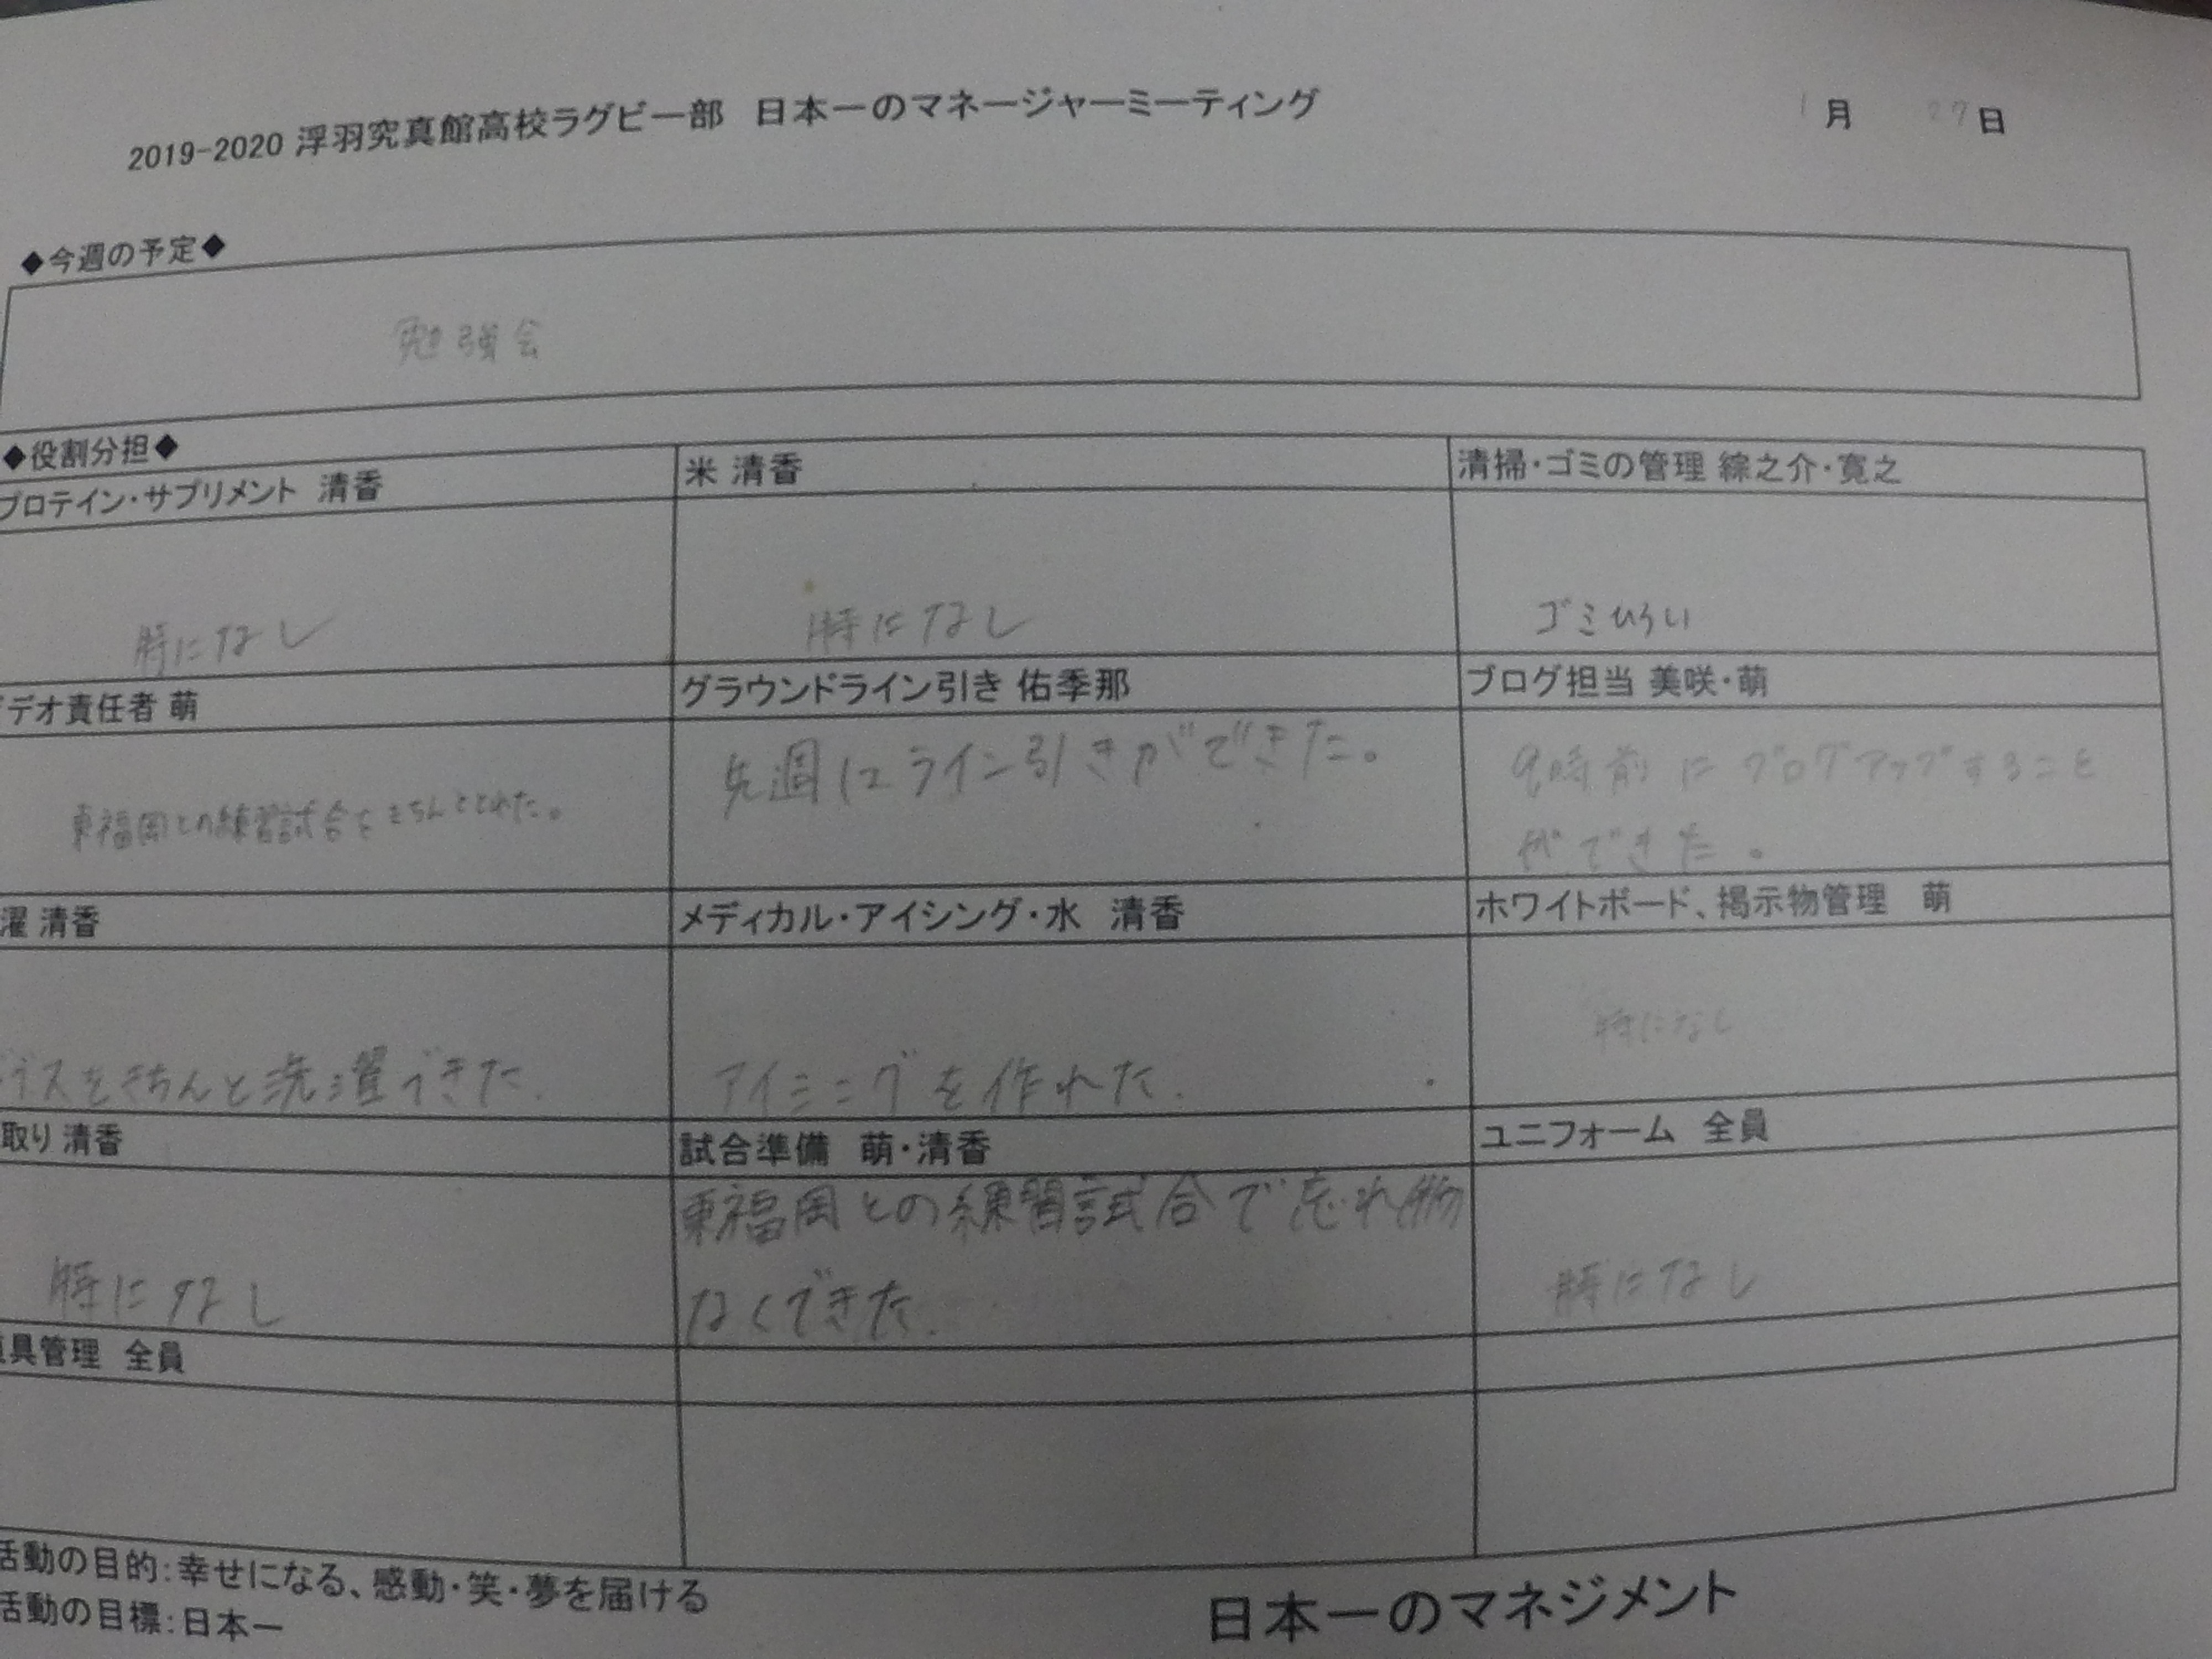 2019-2020 浮羽究真館高校ラグビー部 日本一のマネージャーミーティング 1月 27日
◆今週の予定◆
勉強会
◆役割分担◆
プロテイン・サプリメント 清香
米 清香
清掃・ゴミの管理 綜之介・寛之
特になし
特になし
ゴミひろい
デオ責任者 萌
グラウンドライン引き 佑季那
ブログ担当 美咲・萌
東福岡との練習試合をきちんととれた。
先週にライン引きができた。
9時前にブログアップすること
ができた。
濯 清香
メディカル・アイシング・水 清香
ホワイトボード、掲示物管理 萌
ビブスをきちんと洗濯できた.
アイシングを作れた.
特になし
取り 清香
試合準備 萌・清香
ユニフォーム 全員
特になし
東福岡との練習試合で忘れ物
なくできた.
特になし
具管理 全員
活動の目的:幸せになる、感動・笑・夢を届ける
活動の目標:日本一
日本一のマネジメント